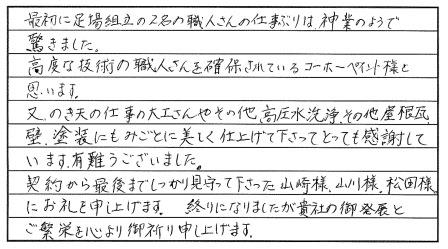 最初に足場組立の2名の職人さんの仕事ぶりは、神業のようで
驚きました。
高度な技術の職人さんを確保されているコーホーペイント様と
思います。
又、のき天の仕事の大工さんやその他、高圧水洗浄その他屋根瓦
壁、塗装にもみごとに美しく仕上げて下さってとっても感謝して
います。有難うございました。
契約から最後までしっかり見守って下さった山崎様、山川様、松田様、
にお礼を申し上げます。 終りになりましたが貴社の御発展と
ご繁栄を心より御祈り申し上げます。